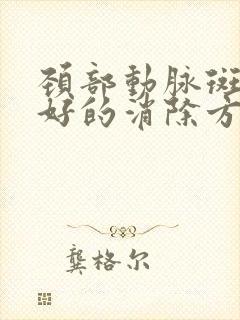 頚部動脉斑
好的消除方
龔格尔